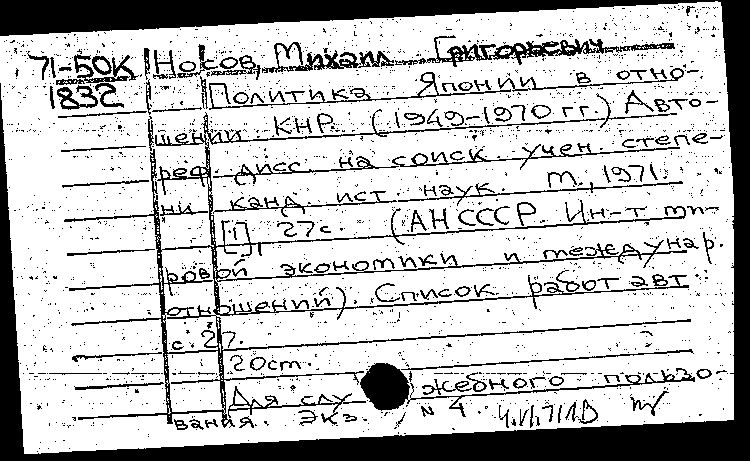 71-БОК Носов, Михаил Григорьевич
1832 Политика Японии в отно-
шении КНР. (1949-1970 гг.) Авто-
реф. дисс. на соиск. учен. степе-
ни канд. ист. наук. М., 1971.
[1], 27с. (АН СССР. Ин-т ми-
ровой экономики и междунар.
отношений). Список работ авт.
с. 27.
20см.
Для служебного пользо-
вания. Экз. N 4.